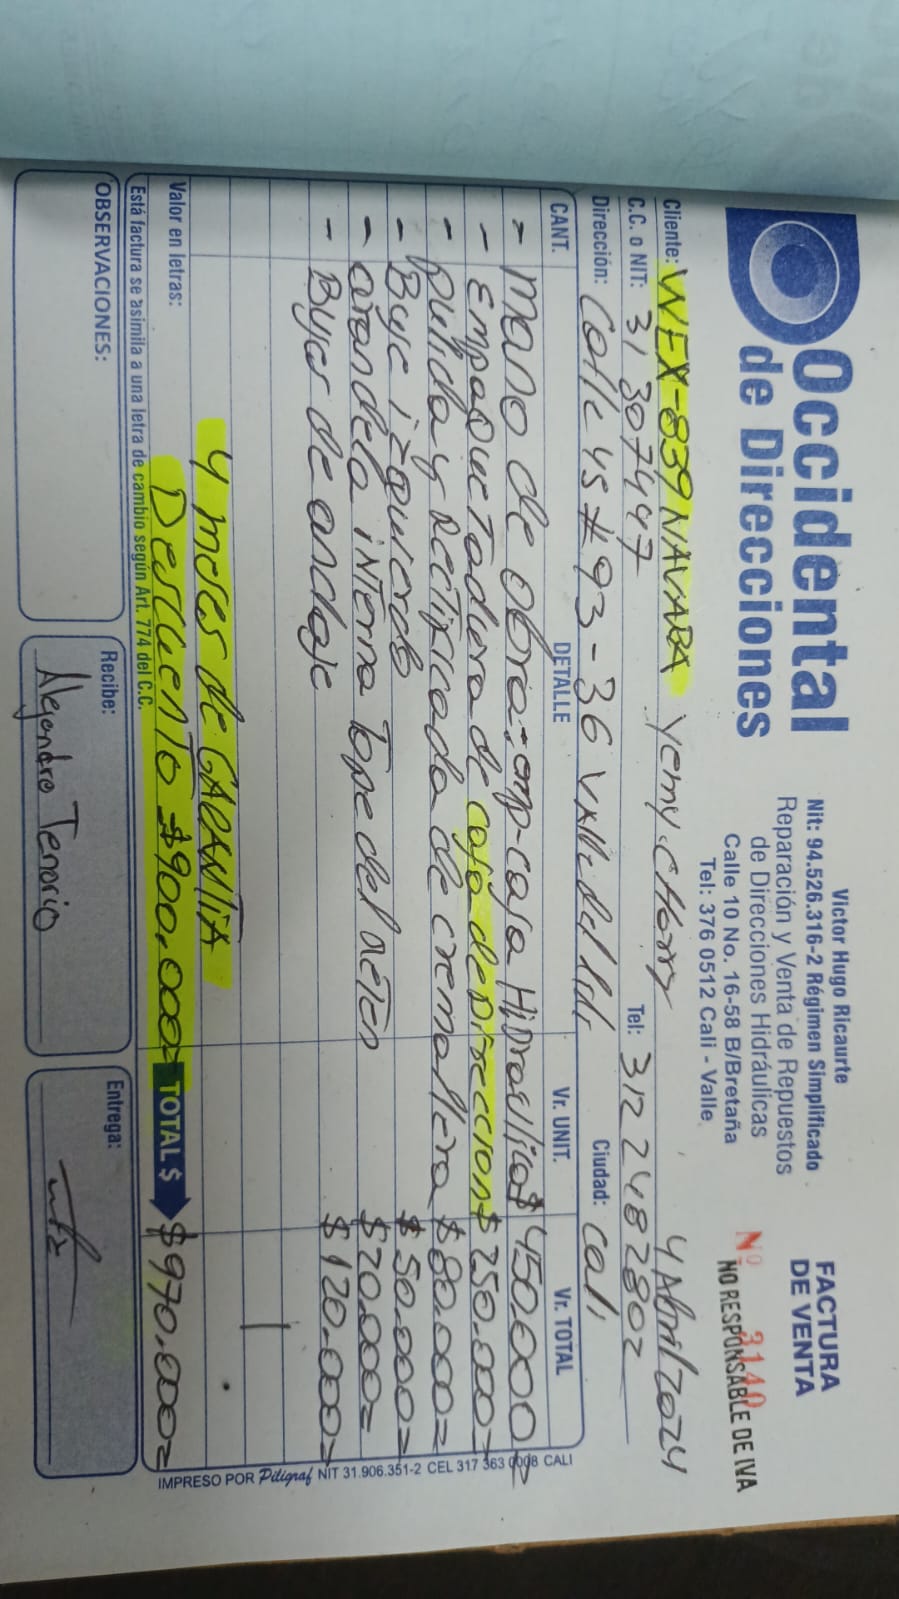 Occidental
de Direcciones
Victor Hugo Ricaurte
Nit: 94.526.316-2 Régimen Simplificado
Reparación y Venta de Repuestos
de Direcciones Hidráulicas
Calle 10 No. 16-58 B/Bretaña
Tel: 376 0512 Cali - Valle
FACTURA
DE VENTA
Nº 3140
NO RESPONSABLE DE IVA
4 Abril/2024
Cliente: WEX-839 NAVARA Yemy.
C.C. o NIT: 31 307447 Tel: 312 2482802
Dirección: Calle 45 # 93-36 Valle del Lili Ciudad: Cali
CANT. DETALLE Vr. UNIT. Vr. TOTAL
- Mano de obra: caja Hidraulica $ 450.000=
- Empaquetadura de caja de Direccion $ 250.000=
- pulida y Rectificada de cremallera $ 80.000=
- Buje izquierdo $ 50.000=
- arandela interna Tope del reten $ 20.000=
- Bujes de anclaje $ 120.000=
4 meses de GARANTIA
Valor en letras: Descuento $900.000= TOTAL $ $970.000=
Está factura se asimila a una letra de cambio según Art. 774 del C.C.
OBSERVACIONES:
Recibe:
Alejandro Tenorio
Entrega:
IMPRESO POR Piligraf NIT 31.906.351-2 CEL 317 363 0008 CALI